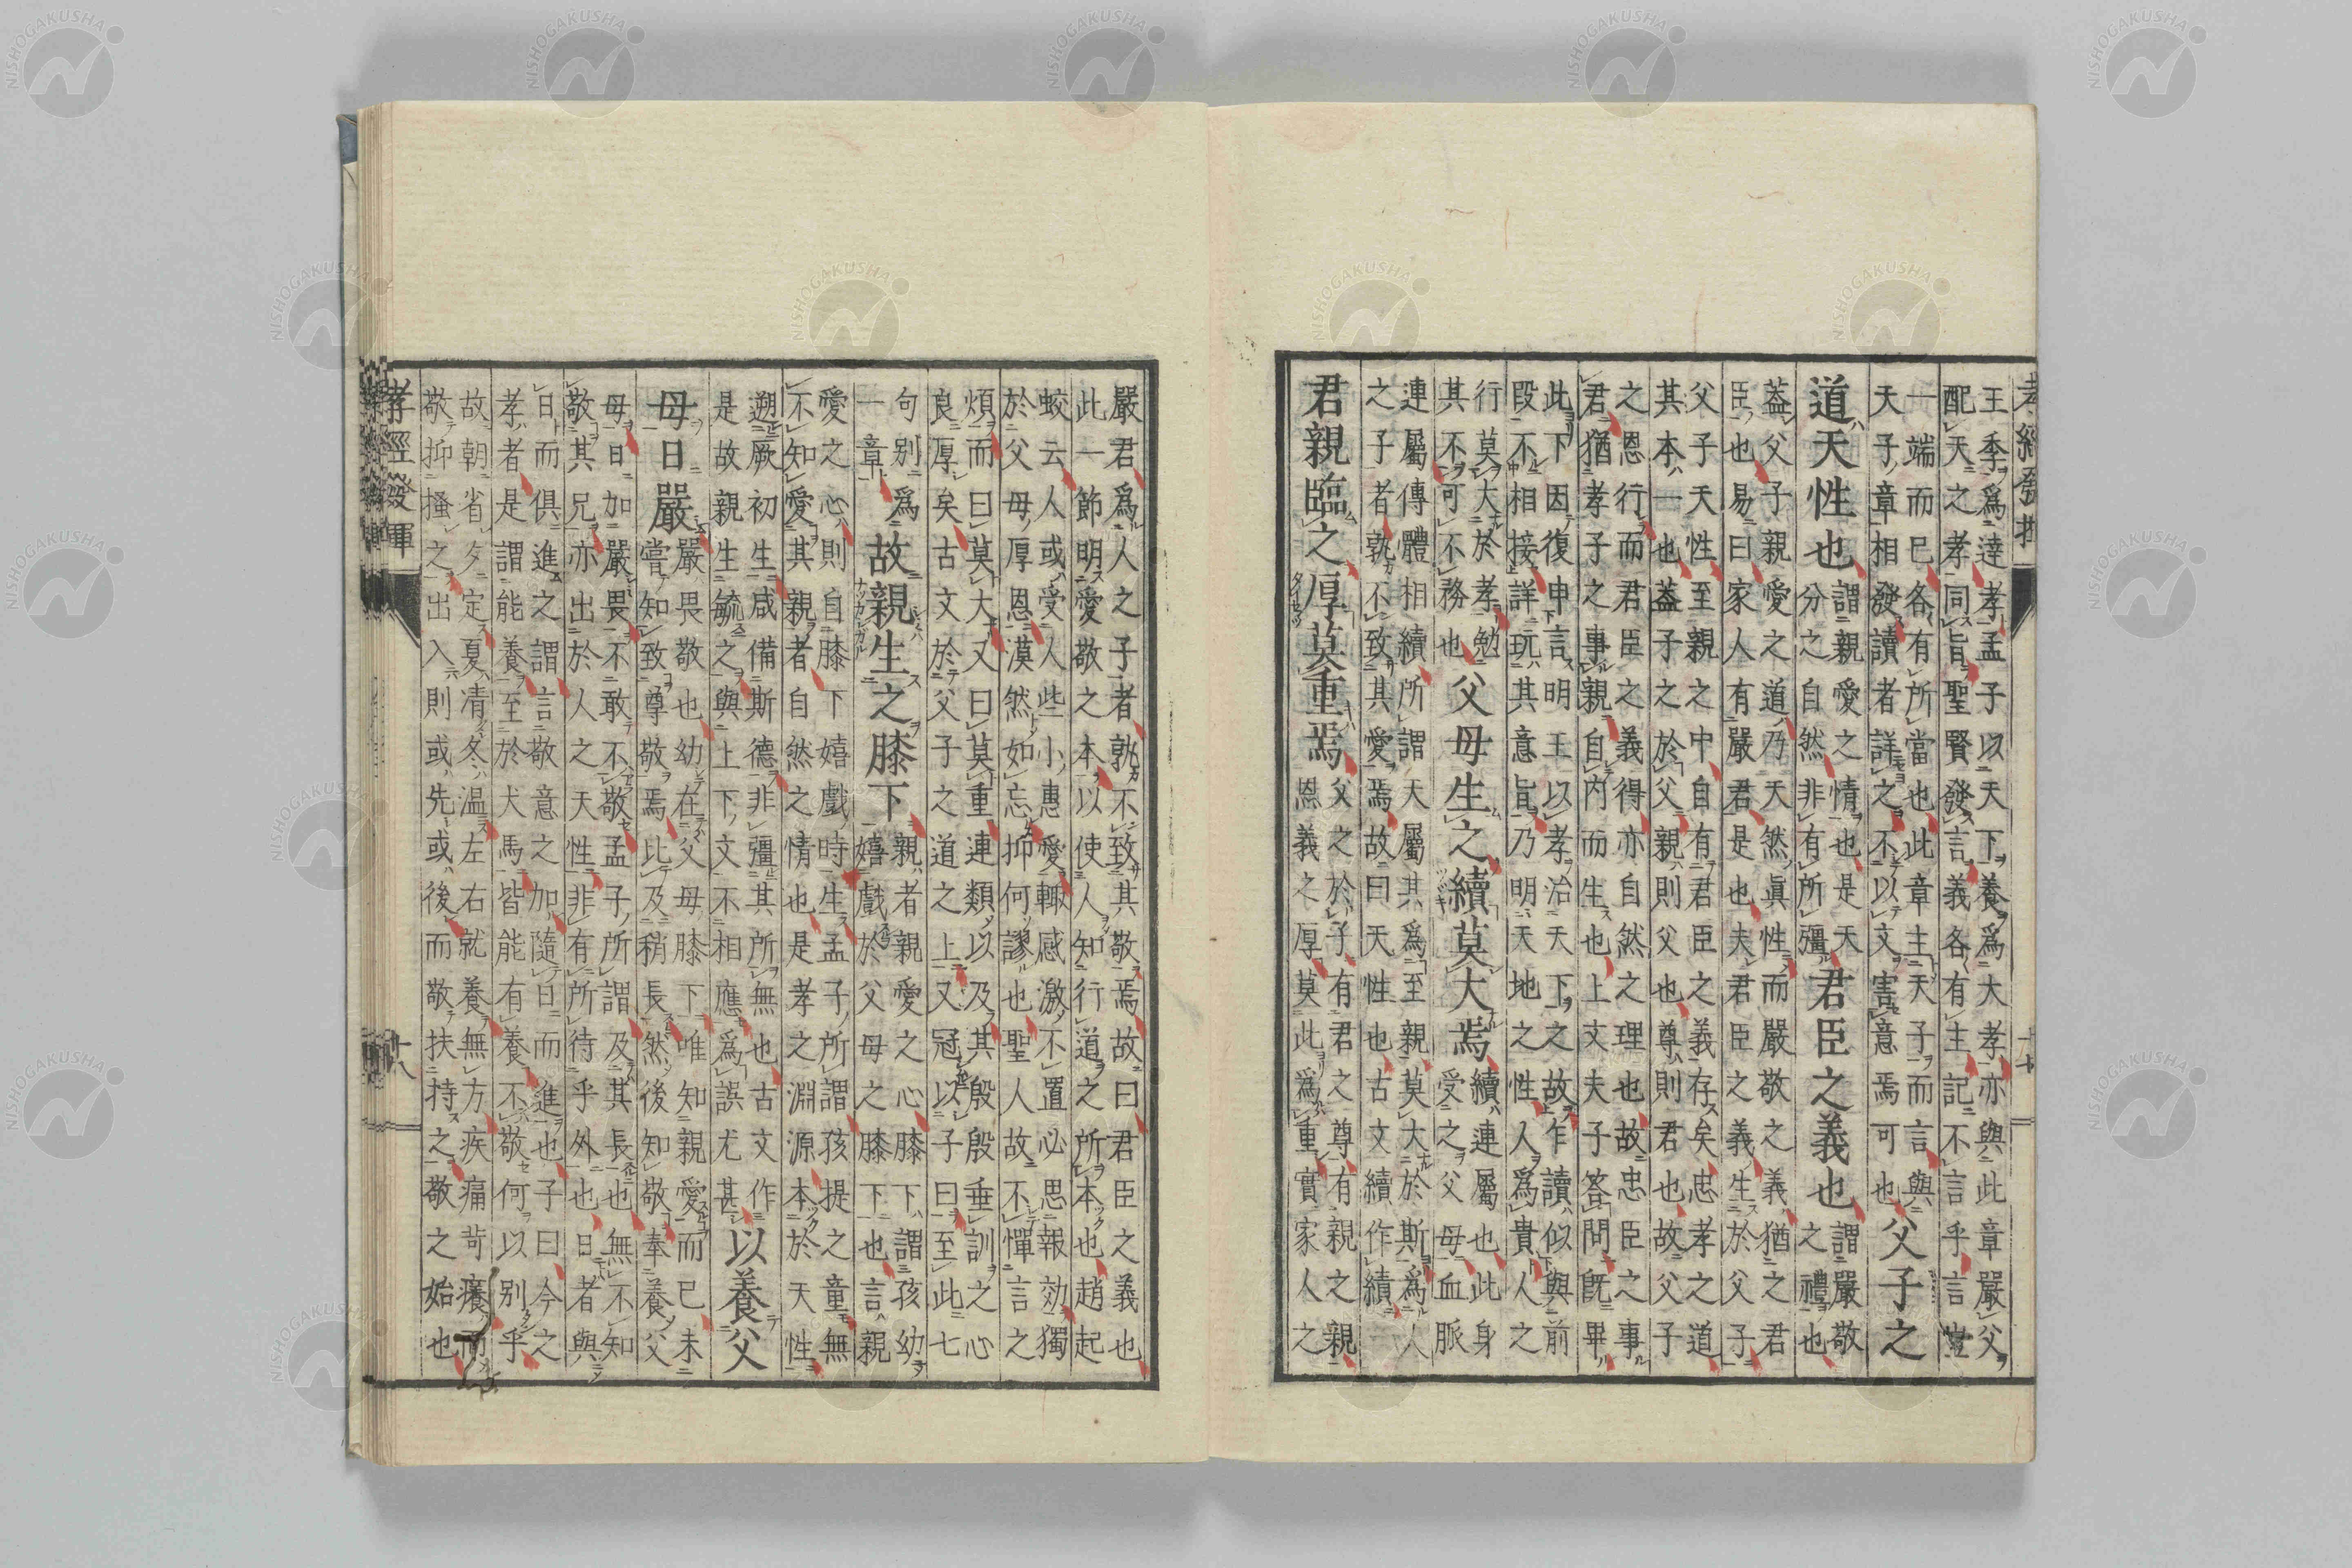 孝經發揮　十七
王季爲達孝孟子以天下養爲大孝亦與此章嚴父
配天之孝同旨聖賢發言義各有主記不言乎言豈
一端而已各有所當也此章主天子而言與
天子章相發讀者詳之不以文害意焉可也
父子之
道天性也
謂親愛之情也是天
分之自然非有所彊
君臣之義也
謂嚴敬
之禮也
蓋父子親愛之道乃天然眞性而嚴敬之義猶之君
臣也易曰家人有嚴君是也夫君臣之義生於父子
父子天性至親之中自有君臣之義存矣忠孝之道
其本一也蓋子之於父親則父也尊則君也故父子
之恩行而君臣之義得亦自然之理也故忠臣之事
君猶孝子之事親自內而生也上文夫子答問既畢
此下因復申言明王以孝治天下之故乍讀似與前
段不相接詳玩其意旨乃明天地之性人爲貴人之
行莫大於孝勉
其不可不務也
父母生之續莫大焉
續連屬也此身
受之父母血脈
連屬傳體相續所謂天屬其爲至親莫大於斯爲人
之子者孰不致其愛焉故曰天性也古文續作績
君親臨之厚莫重焉
父之於子有君之尊有親之親
恩義之厚莫此爲重實家人之
嚴君爲人之子者孰不致其敬焉故曰君臣之義也
此一節明愛敬之本以使人知行道之所本也趙起
蛟云人或受人些小惠愛輙感激不置必思報効獨
於父母厚恩漠然如忘抑何謬也聖人故不憚言之
煩而曰莫大又曰莫重連類以及其殷殷垂訓之心
良厚矣古文於父子之道之上又冠以子曰至此七
句別爲
一章
故親生之膝下
親者親愛之心膝下謂孩幼
嬉戲於父母之膝下也言親
愛之心則自膝下嬉戲時生孟子所謂孩提之童無
不知愛其親者自然之情也是孝之淵源本於天性
遡厥初生咸備斯德非彊其所無也古文作
是故親生毓之與上下文不相應爲誤尤甚
以養父
母日嚴
嚴畏敬也幼在父母膝下唯知親愛而已未
嘗知致尊敬焉比及稍長然後知敬奉養父
母日加嚴畏不敢不敬孟子所謂及其長也無不知
敬其兄亦出於人之天性非有所待乎外也日者與
日而俱進之謂言敬意之加隨日而進也子曰今之
孝者是謂能養至於犬馬皆能有養不敬何以別乎
故朝省夕定夏凊冬溫左右就養無方疾痛苛癢而
敬抑搔之出入則或先或後而敬扶持之敬之始也
孝經發揮　十八